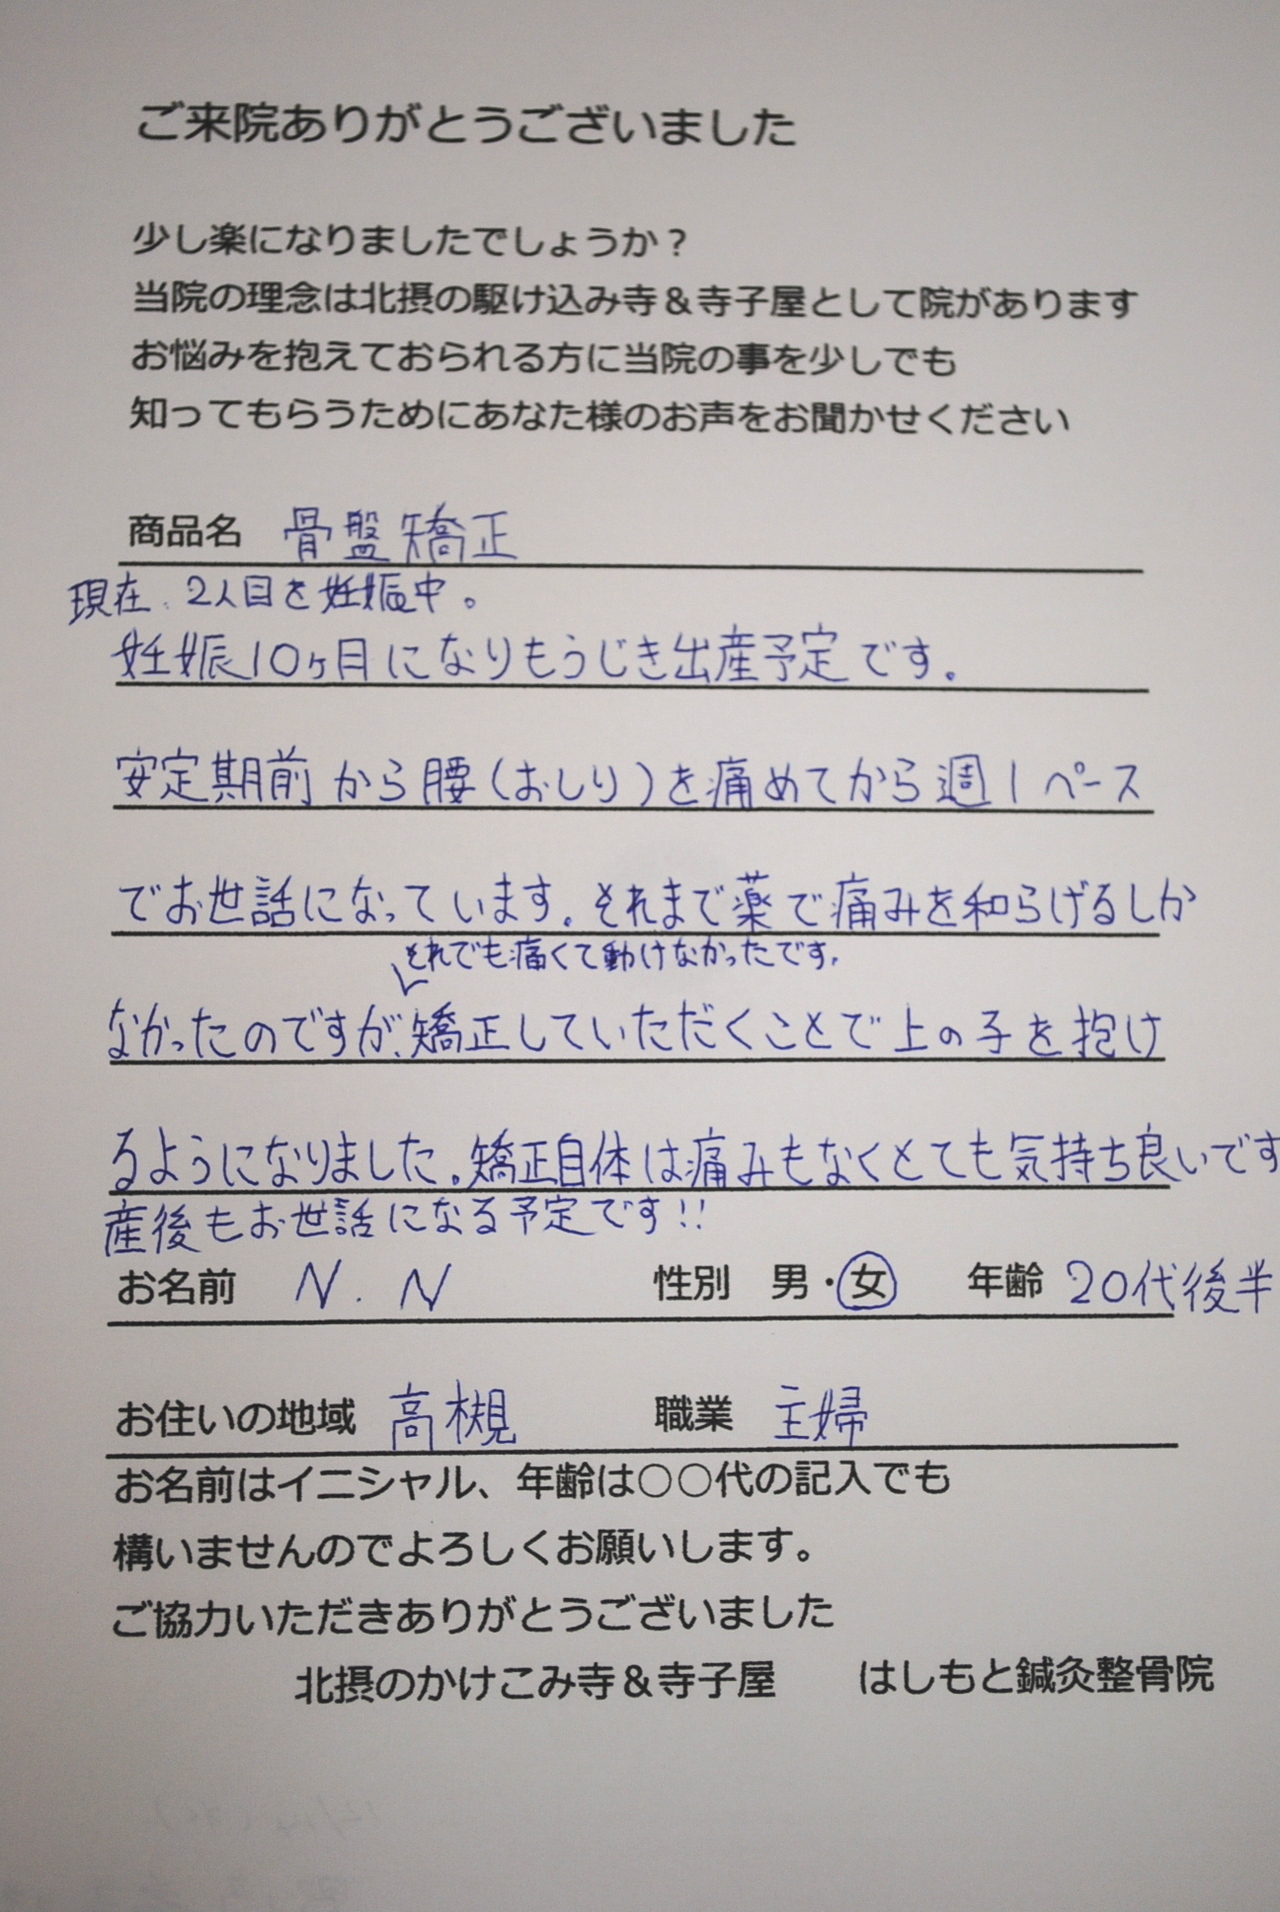 ご来院ありがとうございました
少し楽になりましたでしょうか？
当院の理念は北摂の駆け込み寺＆寺子屋として院があります
お悩みを抱えておられる方に当院の事を少しでも
知ってもらうためにあなた様のお声をお聞かせください
商品名 骨盤矯正
現在、2人目を妊娠中。
妊娠10ヶ月になりもうじき出産予定です。
安定期前から腰(おしり)を痛めてから週1ペース
でお世話になっています。それまで薬で痛みを和らげるしか
それでも痛くて動けなかったです。
なかったのですが、矯正していただくことで上の子を抱け
るようになりました。矯正自体は痛みもなくとても気持ち良いです
産後もお世話になる予定です!!
お名前 N.N 性別 男・女 年齢 20代後半
お住いの地域 高槻 職業 主婦
お名前はイニシャル、年齢は〇〇代の記入でも
構いませんのでよろしくお願いします。
ご協力いただきありがとうございました
北摂のかけこみ寺＆寺子屋 はしもと鍼灸整骨院